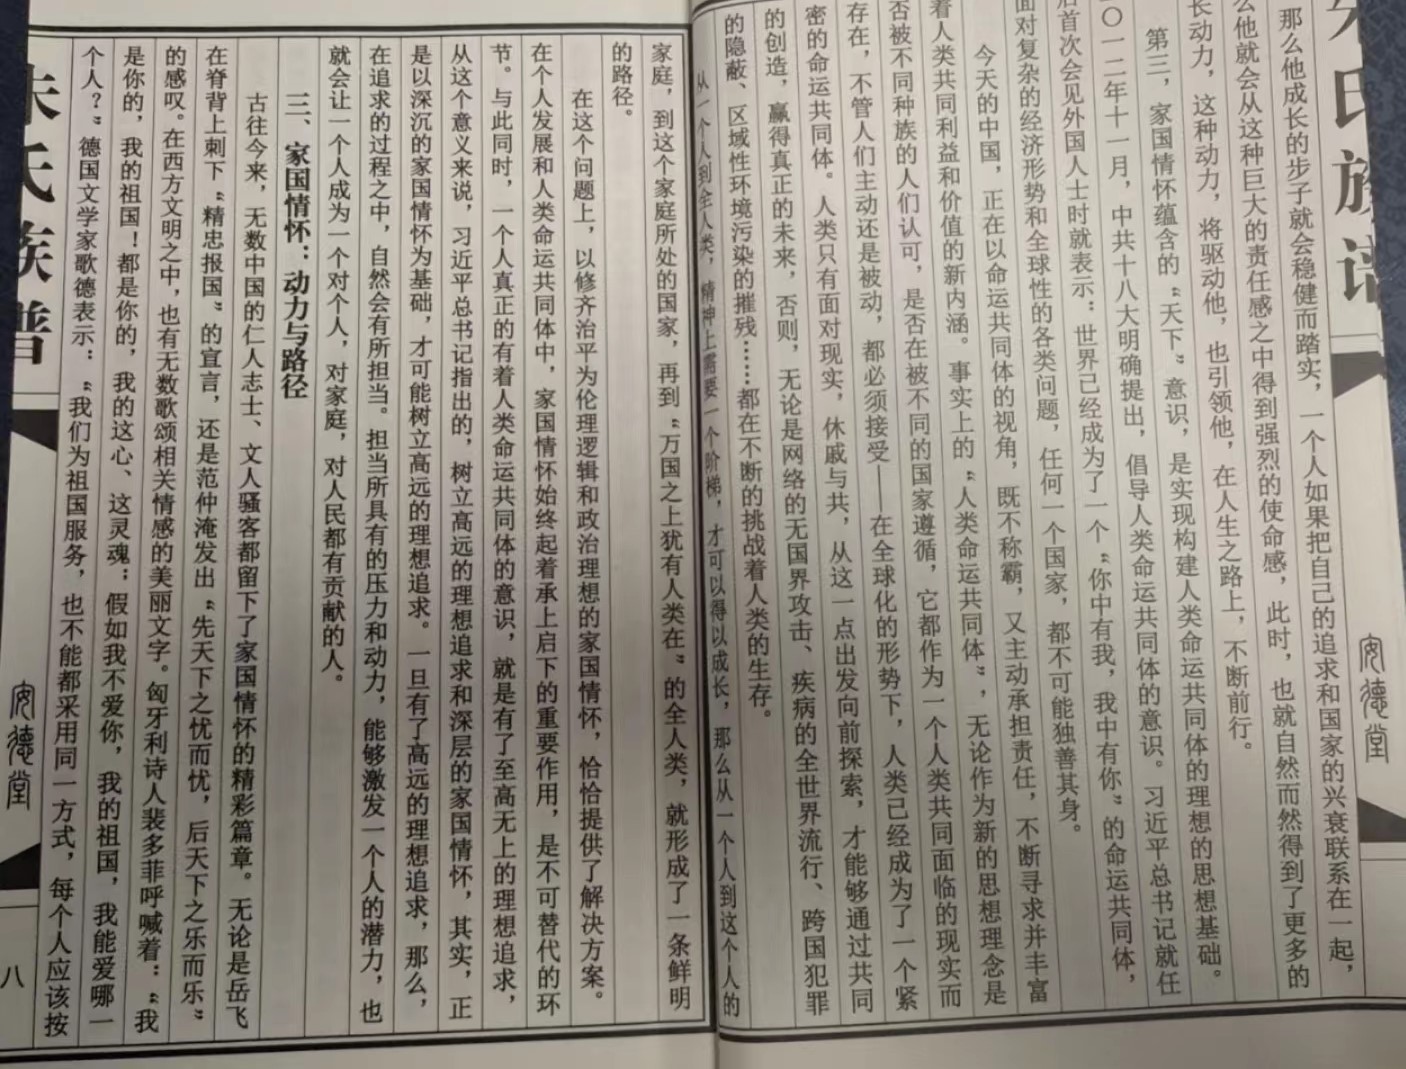 朱氏族谱
安德堂
那么他成长的步子就会稳健而踏实,一个人如果把自己的追求和国家的兴衰联系在一起,
么他就会从这种巨大的责任感之中得到强烈的使命感,此时,也就自然而然得到了更多的
长动力,这种动力,将驱动他,也引领他,在人生之路上,不断前行。
第三,家国情怀蕴含的“天下”意识,是实现构建人类命运共同体的理想的思想基础。
二〇一二年十一月,中共十八大明确提出,倡导人类命运共同体的意识。习近平总书记就任
后首次会见外国人士时就表示:世界已经成为了一个“你中有我,我中有你”的命运共同体,
面对复杂的经济形势和全球性的各类问题,任何一个国家,都不可能独善其身。
今天的中国,正在以命运共同体的视角,既不称霸,又主动承担责任,不断寻求并丰富
着人类共同利益和价值的新内涵。事实上的“人类命运共同体”,无论作为新的思想理念是
否被不同种族的人们认可,是否在被不同的国家遵循,它都作为一个人类共同面临的现实而
存在,不管人们主动还是被动,都必须接受——在全球化的形势下,人类已经成为了一个紧
密的命运共同体。人类只有面对现实,休戚与共,从这一点出发向前探索,才能够通过共同
的创造,赢得真正的未来,否则,无论是网络的无国界攻击、疾病的全世界流行、跨国犯罪
的隐蔽、区域性环境污染的摧残……都在不断的挑战着人类的生存。
从一个人到全人类,精神上需要一个阶梯,才可以得以成长,那么从一个人到这个人的
家庭,到这个家庭所处的国家,再到“万国之上犹有人类在”的全人类,就形成了一条鲜明
的路径。
在这个问题上,以修齐治平为伦理逻辑和政治理想的家国情怀,恰恰提供了解决方案。
在个人发展和人类命运共同体中,家国情怀始终起着承上启下的重要作用,是不可替代的环
节。与此同时,一个人真正的有着人类命运共同体的意识,就是有了至高无上的理想追求,
从这个意义来说,习近平总书记指出的,树立高远的理想追求和深层的家国情怀,其实,正
是以深沉的家国情怀为基础,才可能树立高远的理想追求。一旦有了高远的理想追求,那么,
在追求的过程之中,自然会有所担当。担当所具有的压力和动力,能够激发一个人的潜力,也
就会让一个人成为一个对个人,对家庭,对人民都有贡献的人。
三、家国情怀:动力与路径
古往今来,无数中国的仁人志士、文人骚客都留下了家国情怀的精彩篇章。无论是岳飞
在脊背上刺下“精忠报国”的宣言,还是范仲淹发出“先天下之忧而忧,后天下之乐而乐”
的感叹。在西方文明之中,也有无数歌颂相关情感的美丽文字。匈牙利诗人裴多菲呼喊着:“我
是你的,我的祖国!都是你的,我的这心、这灵魂;假如我不爱你,我的祖国,我能爱哪一
个人?”德国文学家歌德表示:“我们为祖国服务,也不能都采用同一方式,每个人应该按
朱氏族谱
安德堂
八